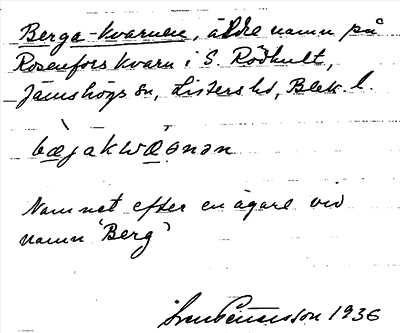 Berga-kvarnen, äldre namn på
Rosenfors kvarn i S. Rödhult,
Jämshögs sn, Listers hd, Blek. l.
bæjakwæʀnən
Namnet efter en ägare vid
namn 'Berg'
1936